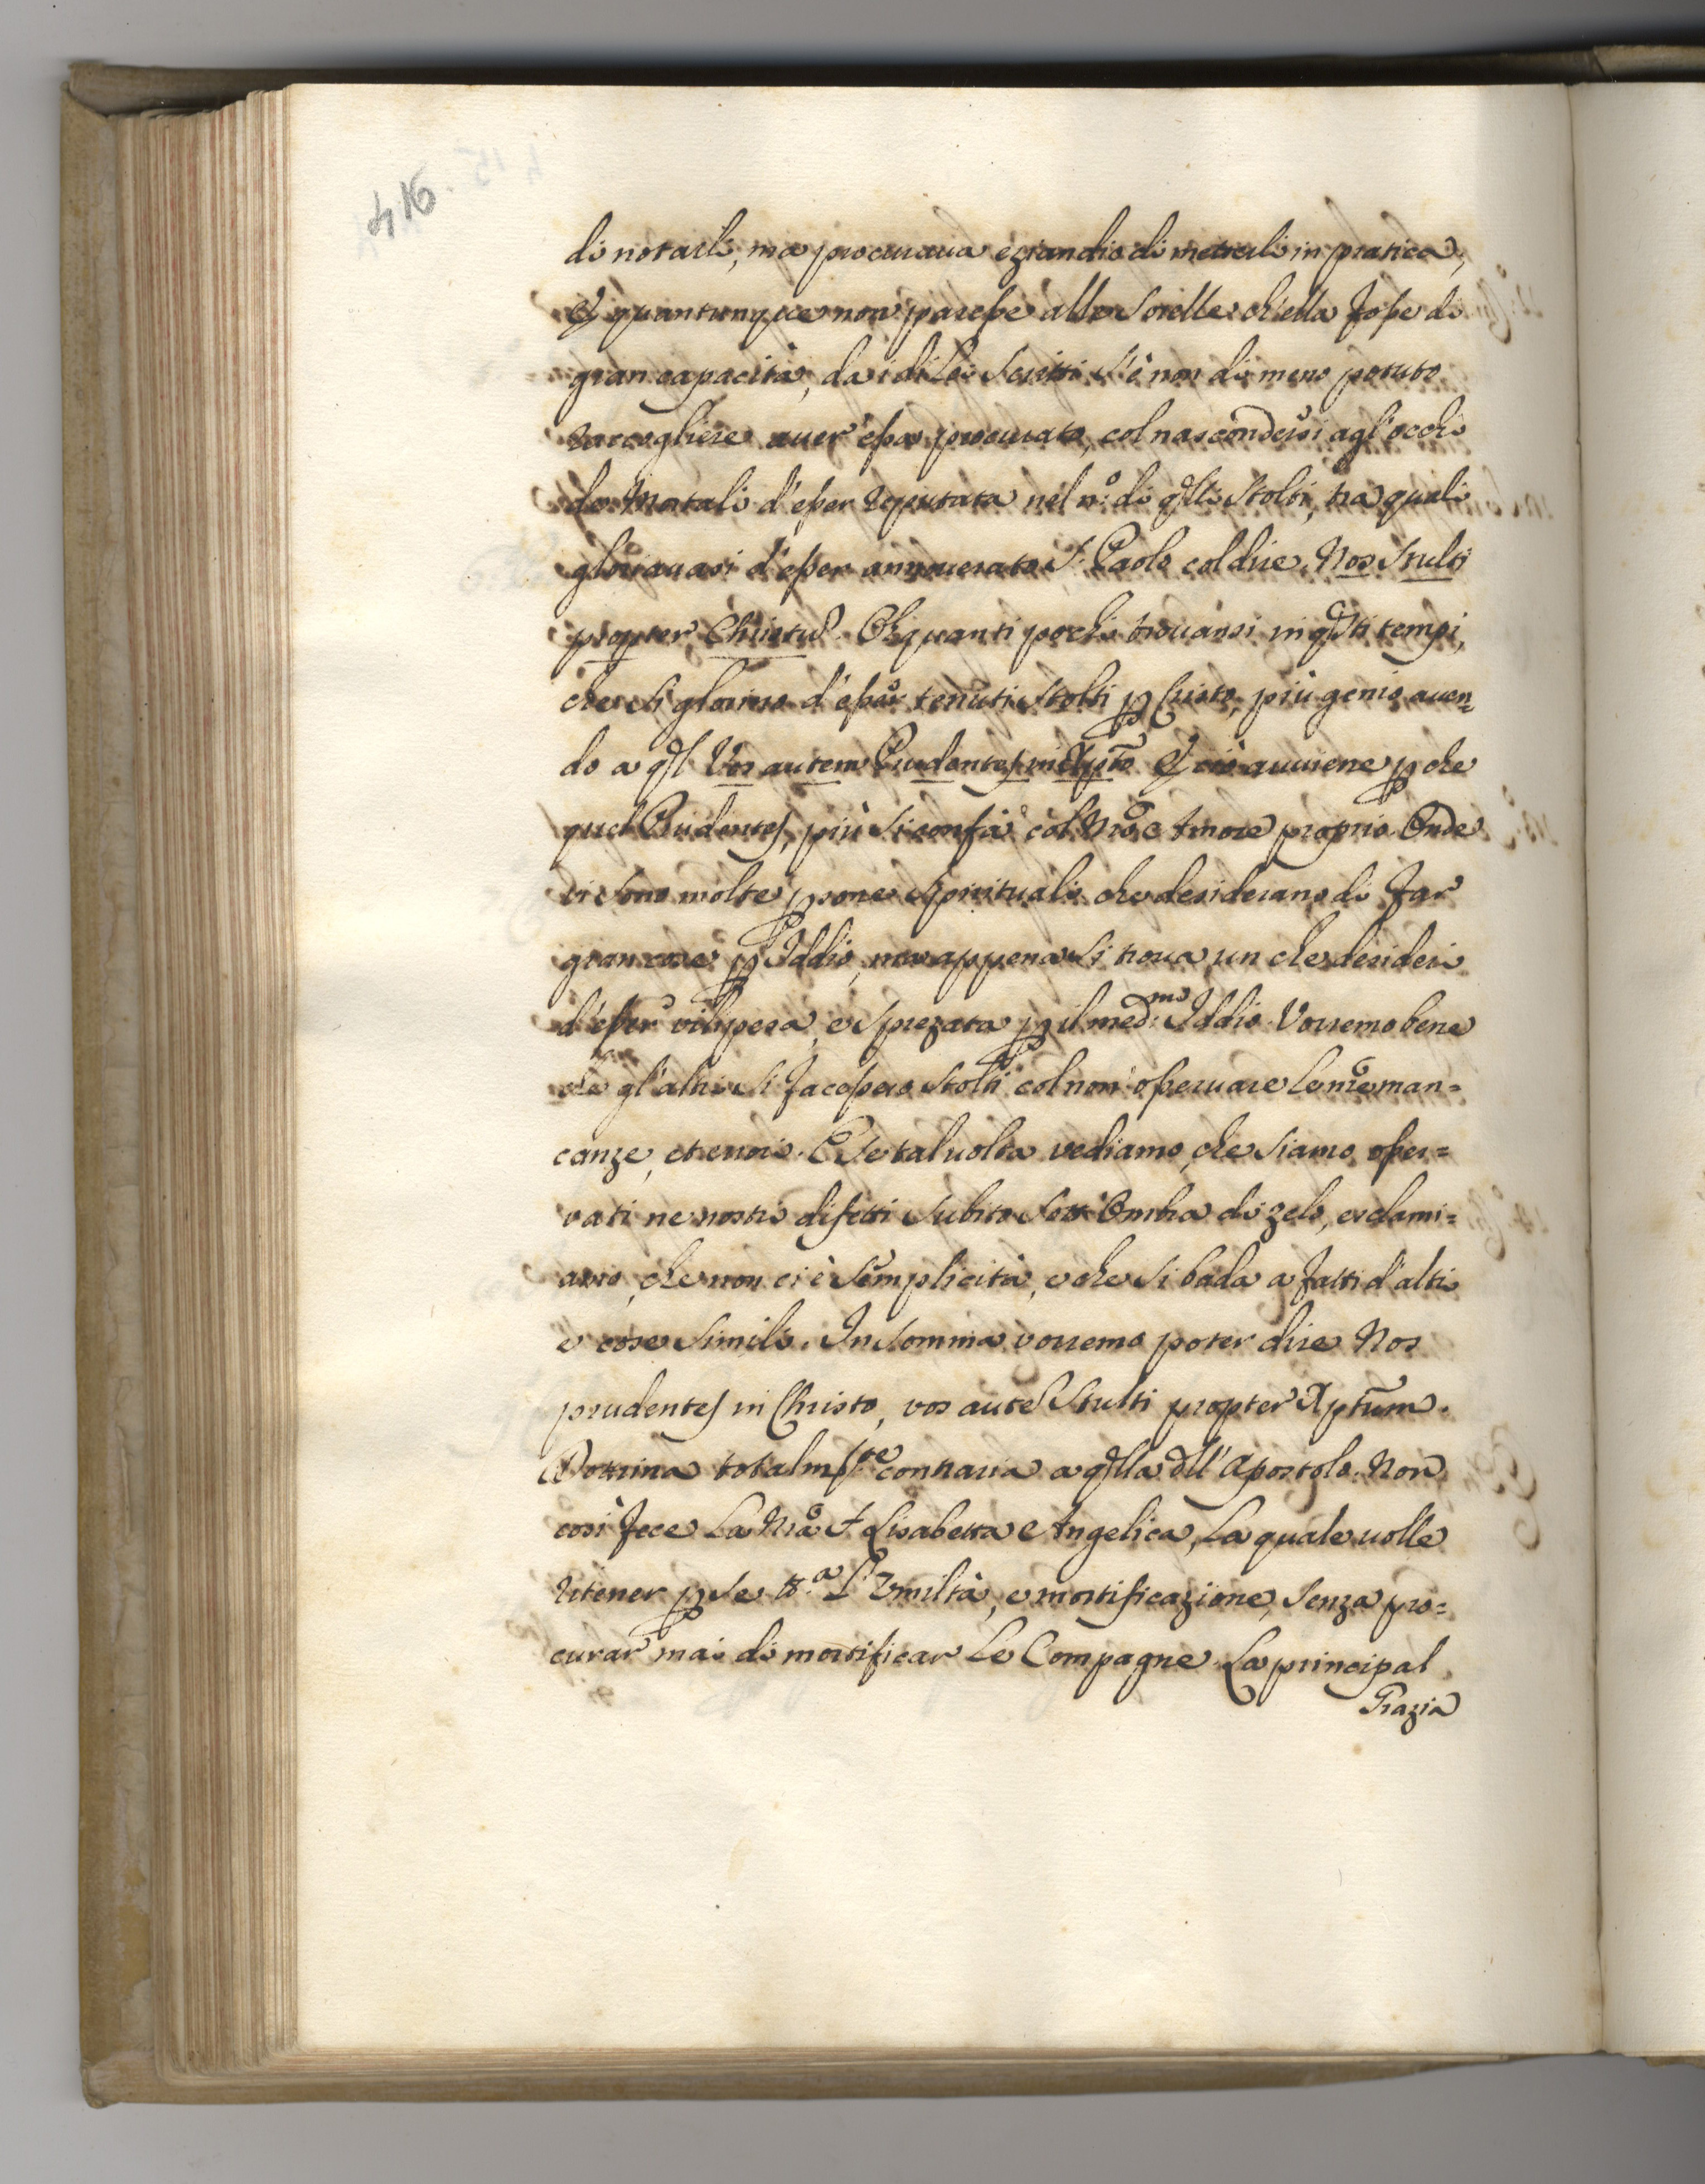 416
di notarli, ma procuraua eziandio di metterli in pratica;
E quantunque non paresse alle Sorelle ch'ella fosse di
gran capacità, da i di Lei Scritti s'è non di meno potuto
raccogliere auer' essa procurato, col nascondersi agl'occhi
de Mortali d'esser reputata nel n.º di qlli Stolti, tra quali
gloriauasi d'esser annouerato S. Paolo col dire. Nos Stulti
propter Christũ. Oh quanti pochi trouansi in qsti tempi,
che si glorino d'esser tenuti Stolti p Cristo, più genio auen=
do a ql Vos autem Prudentes in Xpto. E ciò auuiene p che
quel Prudentes, più si confà col Nrõ Amore proprio. Onde
vi sono molte psone Spirituali che desiderano di far
gran cose p Iddio, ma appena si troua un che desideri
d'esser vilipesa, e sprezata p il med:mo Iddio. Vorremo bene
che gl'altri si facessero stolti col non' osseruare le nrẽ man=
canze, et errori. E se taluolta vediamo, che siamo osser=
vati ne nostri difetti subito sott' Ombra di zelo, esclami=
amo, che non ci è Semplicità, e che si bada a fatti d'altri
e cose simili. In somma vorremo poter dire Nos
prudentes in Christo, vos autẽ Stulti propter Xptum.
Dottrina totalmte contraria a qlla dll' Apostolo. Non
così fece La Nrã Sr Lisabetta Angelica, La quale uolle
ritener p se tt.a L'Vmiltà, e mortificazione, senza pro=
curar mai di mortificar Le Compagne. La principal
Grazia